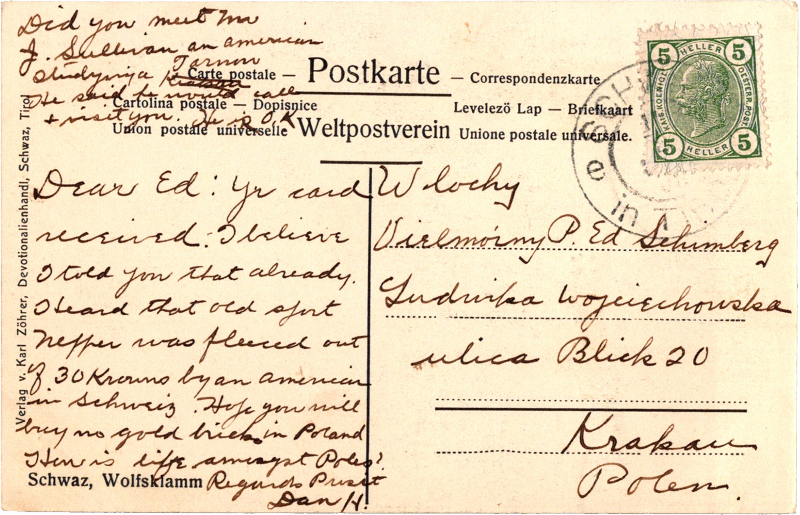 Did you meet Mr
J. Sullivan an american
Studying a Tarnow
He said he would call
+ visit you. He is O.K
Carte postale — Postkarte — Correspondenzkarte
Cartolina postale — Dopisnice
Levelező Lap — Briefkaart
Union postale universelle Weltpostverein Unione postale universale.
5 HELLER 5
KAIS. KOENIGL. OESTERR. POST
5 HELLER 5
Verlag v. Karl Zöhrer, Devotionalienhandl, Schwaz, Tirol
Dear Ed: Yr card
received. I believe
I told you that already.
I heard that old sport
Neffer was fleeced out
of 30 Krowns by an american
in Schweiz. Hope you will
buy no gold bricks in Poland
How is life amongst Poles?
Regards Prosit
Dan H.
Schwaz, Wolfsklamm
Wlochy
Vielmoiny P. Ed Schimberg
Ludwika Wojciechowska
ulica Blick 20
Krakau
Polen.